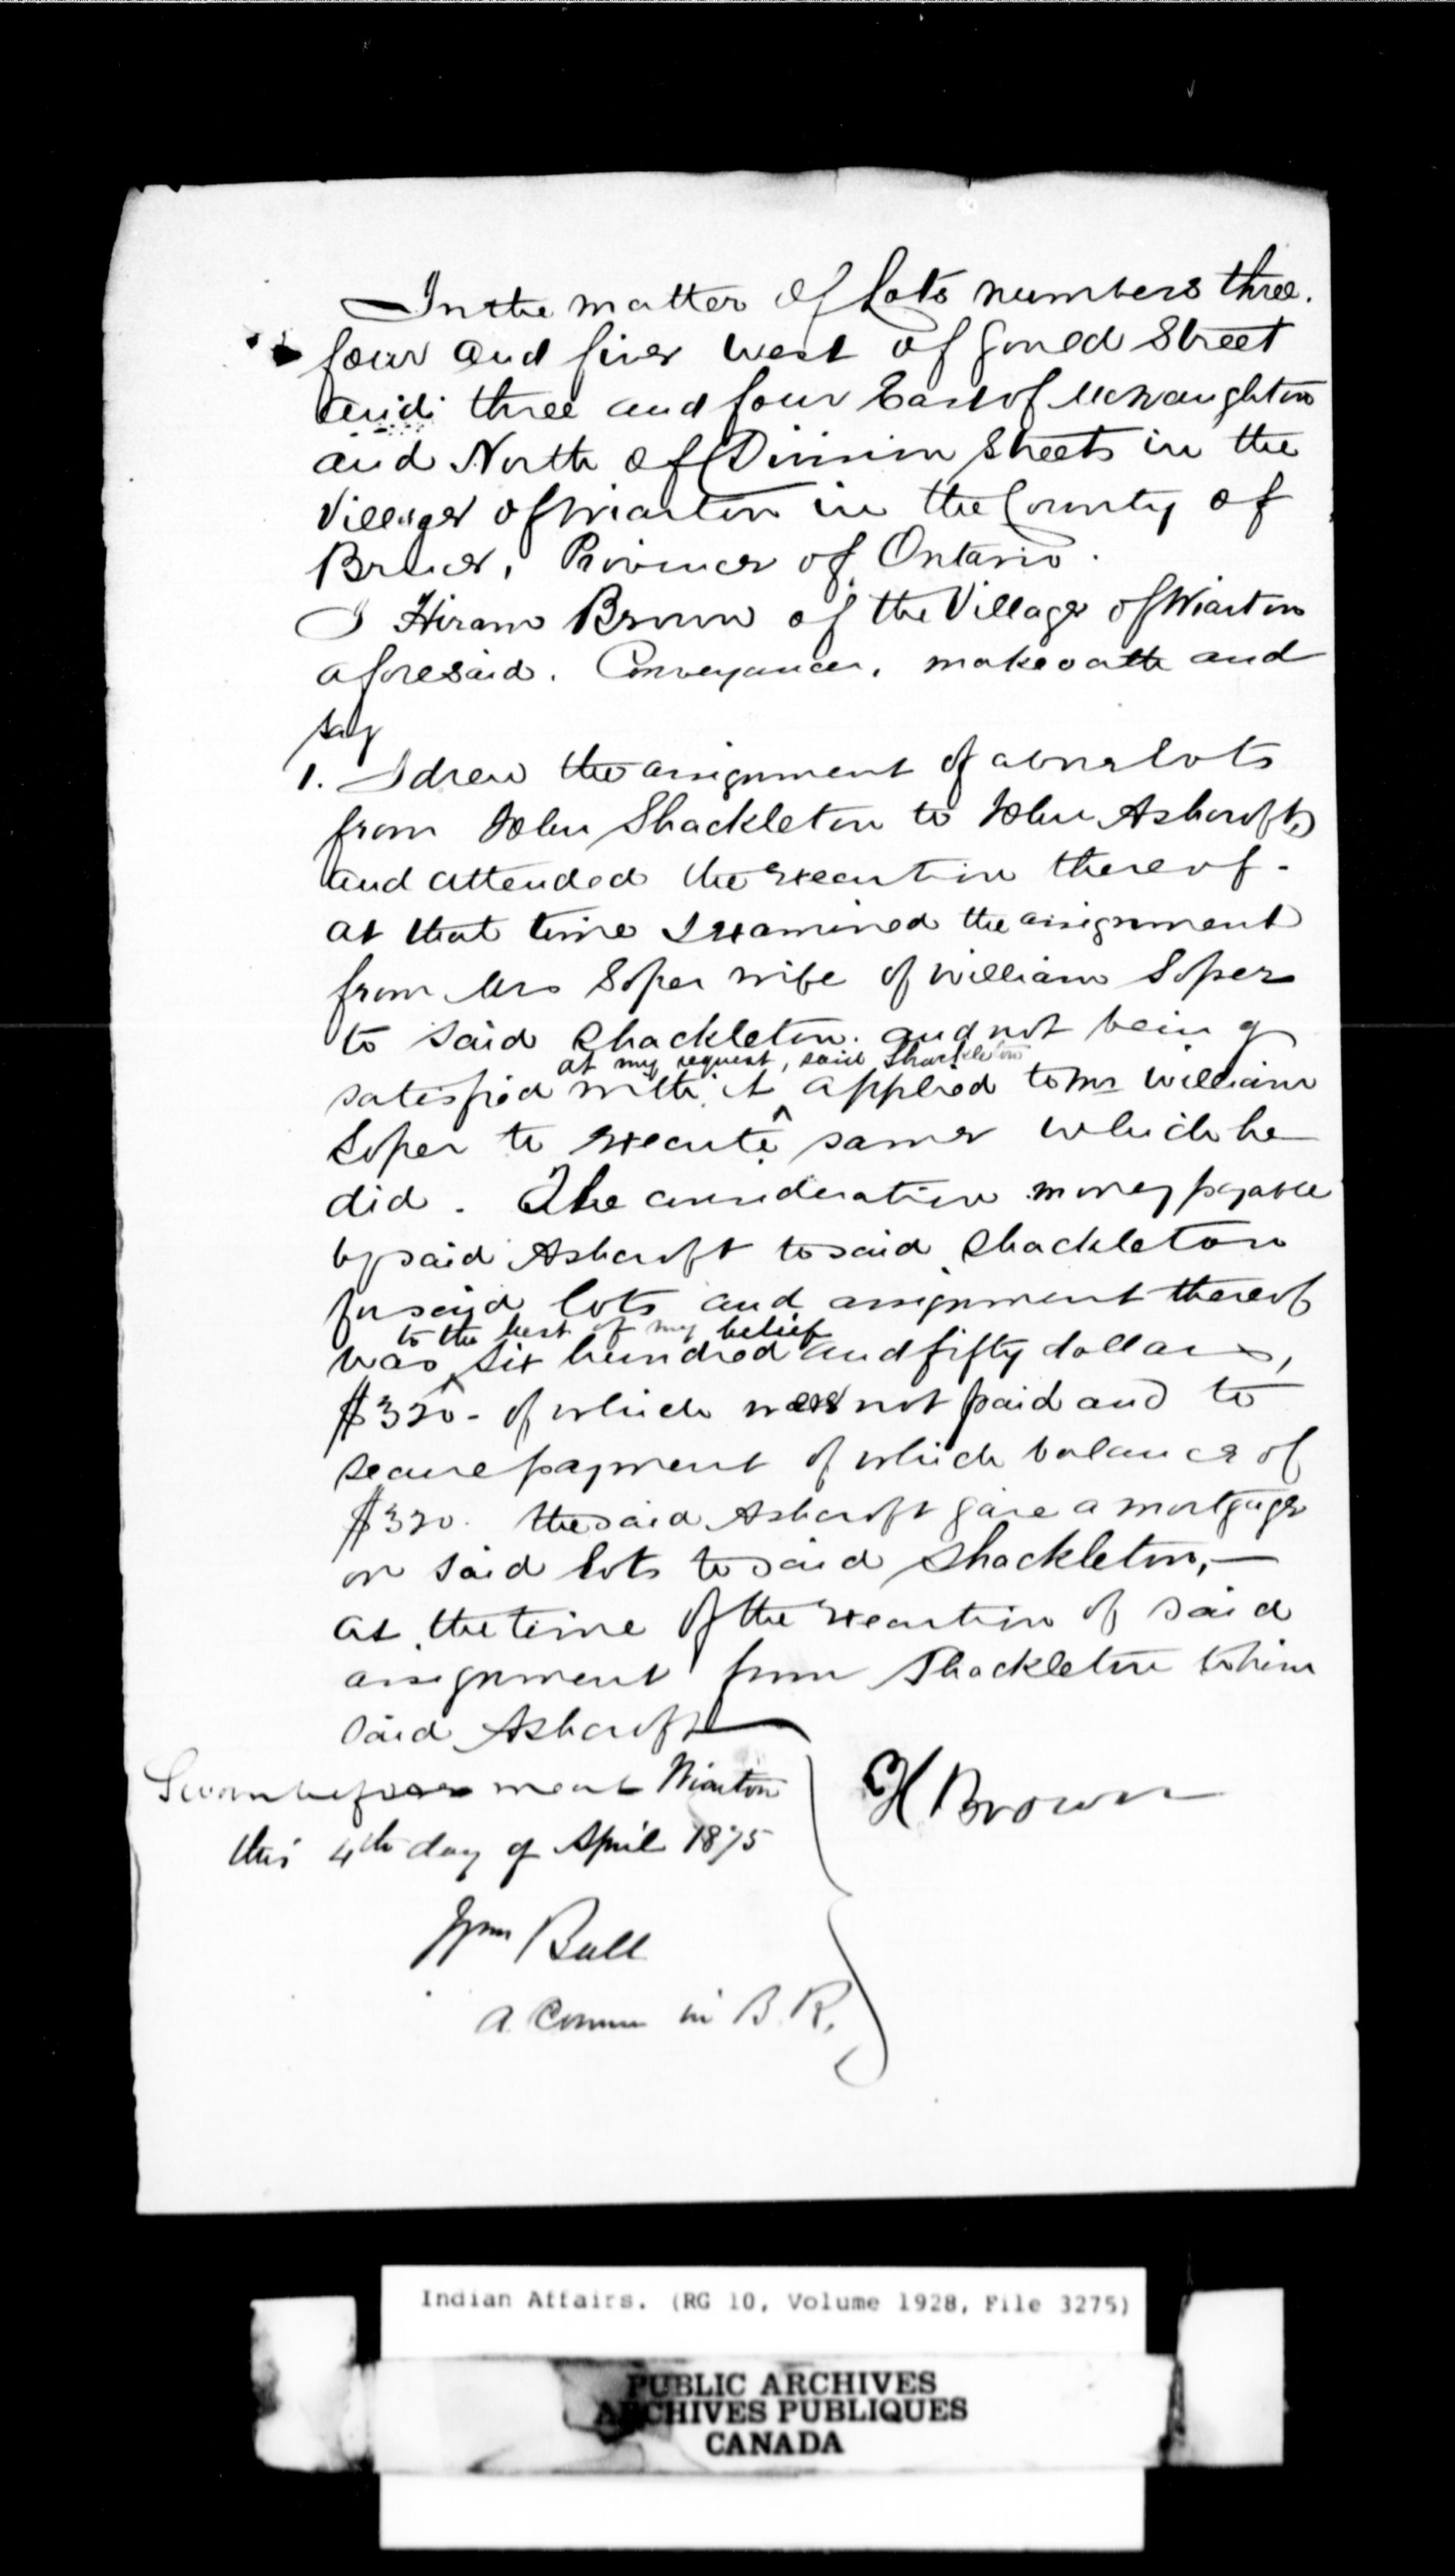 In the matter of Lots numbers three.
four and five West of Gould Street
and three and four East of McNaughton
and North of Division Streets in the
Village of Wiarton in the County of
Bruce, Province of Ontario.
I Hiram Brown of the Village of Wiarton
aforesaid. Conveyancer, make oath and
say
1. I drew the assignment of above lots
from John Shackleton to John Ashcroft,
and attended the execution thereof -
at that time I examined the assignment
from Mrs Soper wife of William Soper
to said Shackleton. and not being
at my request, said Shackleton
satisfied with it ^ applied to Mr William
Soper to execute same which he
did. The consideration money payable
by said Ashcroft to said Shackleton
for said lots and assignment thereof
to the best of my belief
was ^ six hundred and fifty dollars,
$320 - of which was not paid and to
secure payment of which balance of
$320. the said Ashcroft gave a mortgage
on said lots to said Shackleton, —
at the time of the execution of said
assignment from Shackleton to him
said Ashcroft
Sworn before me at Wiarton
this 4th day of April 1875
H Brown
Wm Bull
A Comm in B. R.
Indian Affairs. (RG 10, Volume 1928, File 3275)
PUBLIC ARCHIVES
ARCHIVES PUBLIQUES
CANADA